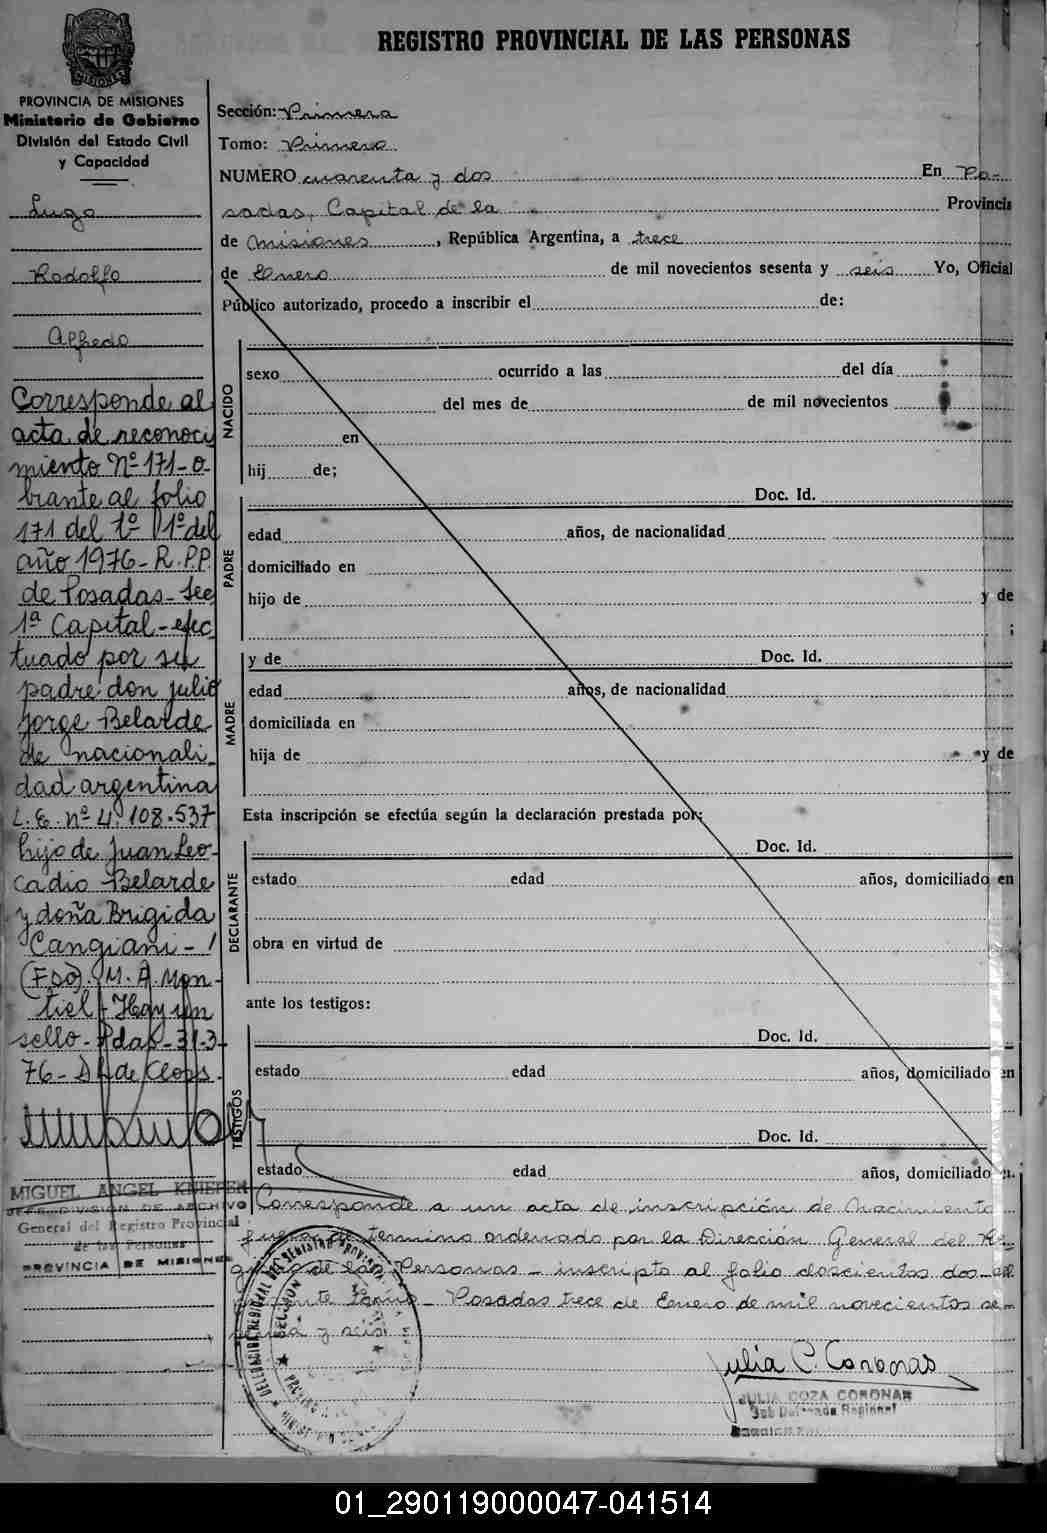 MISIONES
REGISTRO PROVINCIAL DE LAS PERSONAS
PROVINCIA DE MISIONES
Ministerio de Gobierno
División del Estado Civil
y Capacidad
Lugo
Rodolfo
Alfredo
Corresponde al
acta de reconoci
miento Nº 171-o
brante al folio
171 del tº 1º del
año 1976- R.P.P.
de Posadas- Sec
1ª Capital-efec
tuado por su
padre don Julio
Jorge Belarde
de nacionali
dad argentina
L.E. nº 4.108.537
hijo de Juan Leo-
cadio Belarde
y doña Brigida
Cangiani-
(Fdo). M. A. Mon-
tiel- Hay un
sello- Pdas- 31-3-
76-
MIGUEL ANGEL
JEFE DIVISION DE ARCHIVO
General del Registro Provincial
de las Personas
PROVINCIA DE MISIONES
Sección: Primera
Tomo: Primero
NUMERO cuarenta y dos En Po-
sadas, Capital de la Provincia
de Misiones, República Argentina, a trece
de Enero de mil novecientos sesenta y seis Yo, Oficial
Público autorizado, procedo a inscribir el de:
NACIDO
sexo ocurrido a las del día
del mes de de mil novecientos
en
hij de;
PADRE
Doc. Id.
edad años, de nacionalidad
domiciliado en
hijo de y de
;
MADRE
y de Doc. Id.
edad años, de nacionalidad
domiciliada en
hija de y de
Esta inscripción se efectúa según la declaración prestada por:
DECLARANTE
Doc. Id.
estado edad años, domiciliado en
obra en virtud de
ante los testigos:
TESTIGOS
Doc. Id.
estado edad años, domiciliado en
Doc. Id.
estado edad años, domiciliado
Corresponde a un acta de inscripción de Nacimiento
fuera de termino ordenado por la Dirección General del Re-
gistro de las Personas - inscripto al folio doscientos dos- del
presente tomo- Posadas trece de Enero de mil novecientos se-
senta y seis.
DELEGACION REGIONAL DEL REGISTRO PROVINCIAL
SECCION
Julia C. Coronas
JULIA COZA CORONAS
Sub Delegada Regional
01_290119000047-041514